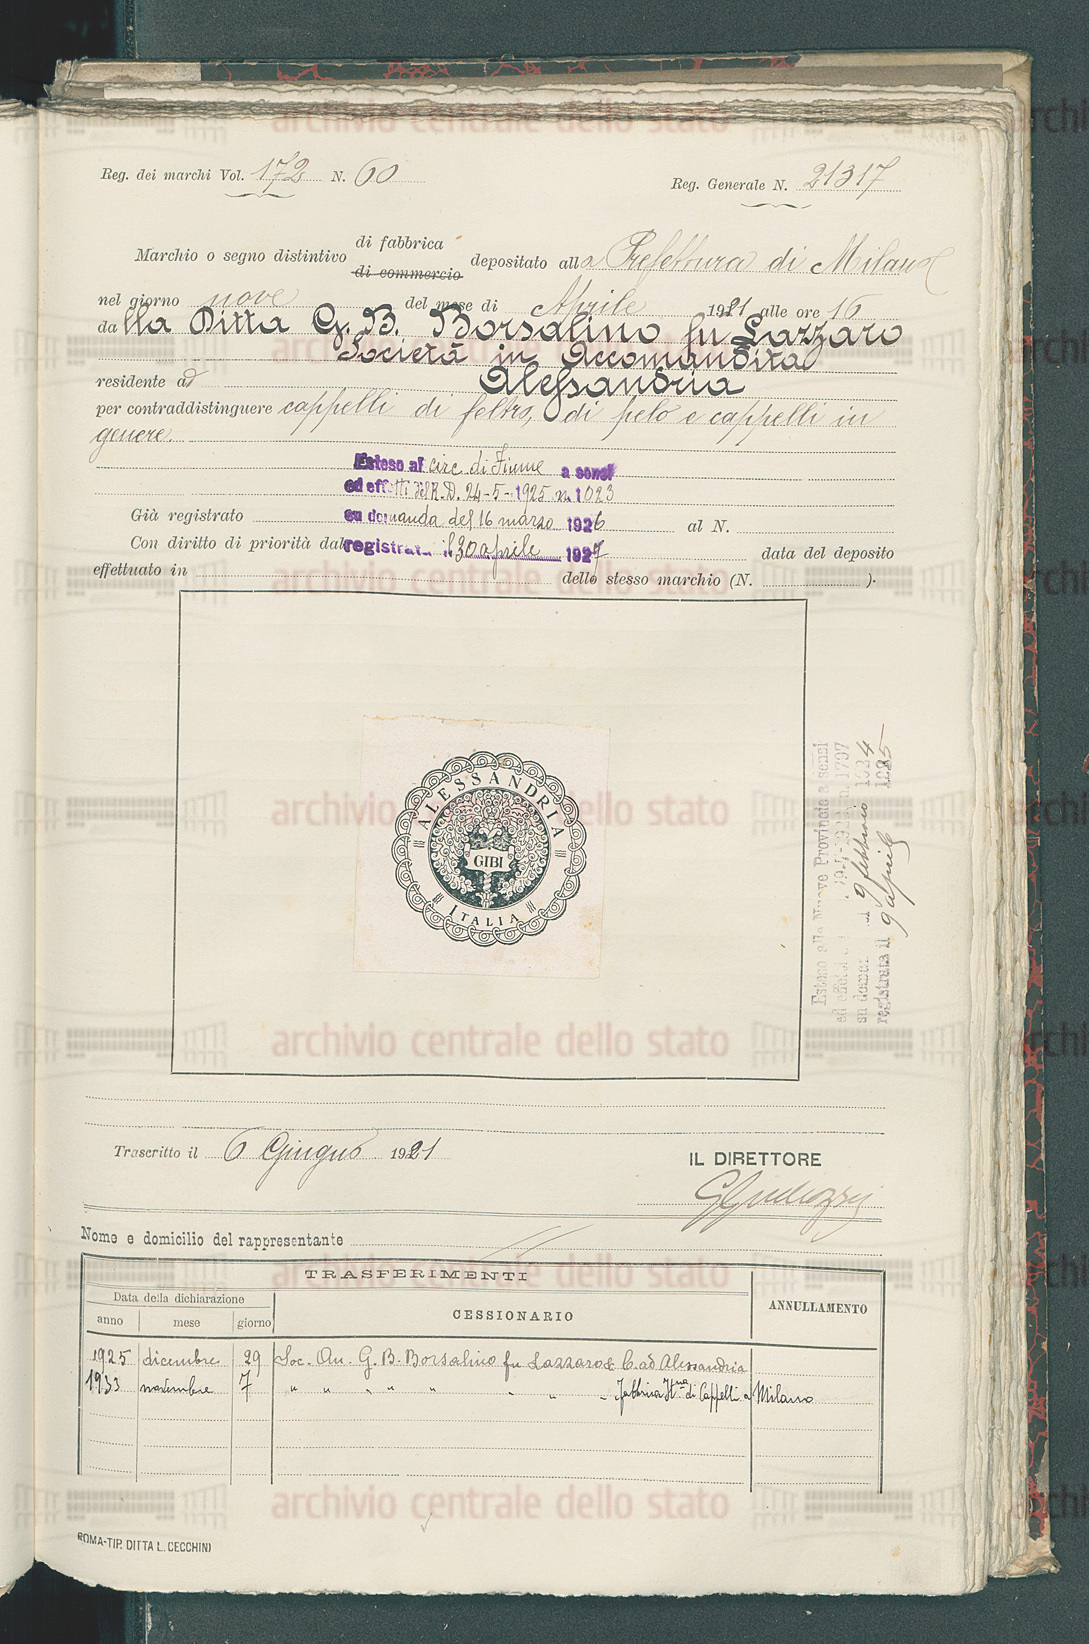 Reg. dei marchi Vol. 172 N. 60
Reg. Generale N. 21317
Marchio o segno distintivo di fabbrica di commercio depositato alla Prefettura di Milano
nel giorno nove del mese di Aprile 1921 alle ore 16
dalla Ditta G. B. Borsalino fu Lazzaro
Società in Accomandita
residente ad Alessandria
per contraddistinguere cappelli di feltro, di pelo e cappelli in
genere.
Esteso al circ. di Fiume a sensi
ed effetti del R. D. 24-5-1925 n. 1023
Già registrato su domanda del 16 marzo 1926 al N.
Con diritto di priorità dal registrata il 30 aprile 1927 data del deposito
effettuato in dello stesso marchio (N. ).
ALESSANDRIA
GIBI
ITALIA
Esteso alle Nuove Provincie a sensi
ed effetti n. 1707
su doman 9 febbraio 1924
registrata il 9 aprile 1925
Trascritto il 6 Giugno 1921
IL DIRETTORE
Nome e domicilio del rappresentante
TRASFERIMENTI
Data della dichiarazione
anno mese giorno
CESSIONARIO
ANNULLAMENTO
1925 dicembre 29 Soc. An. G. B. Borsalino fu Lazzaro & C. ad Alessandria
1933 novembre 7 " " " " " " " " Fabbrica Itna di Cappelli a Milano
ROMA-TIP. DITTA L. CECCHINI
archivio centrale dello stato
archivio centrale dello stato
archivio centrale dello stato
archivio centrale dello stato
archivio centrale dello stato
archivio centrale dello stato
archivio centrale dello stato